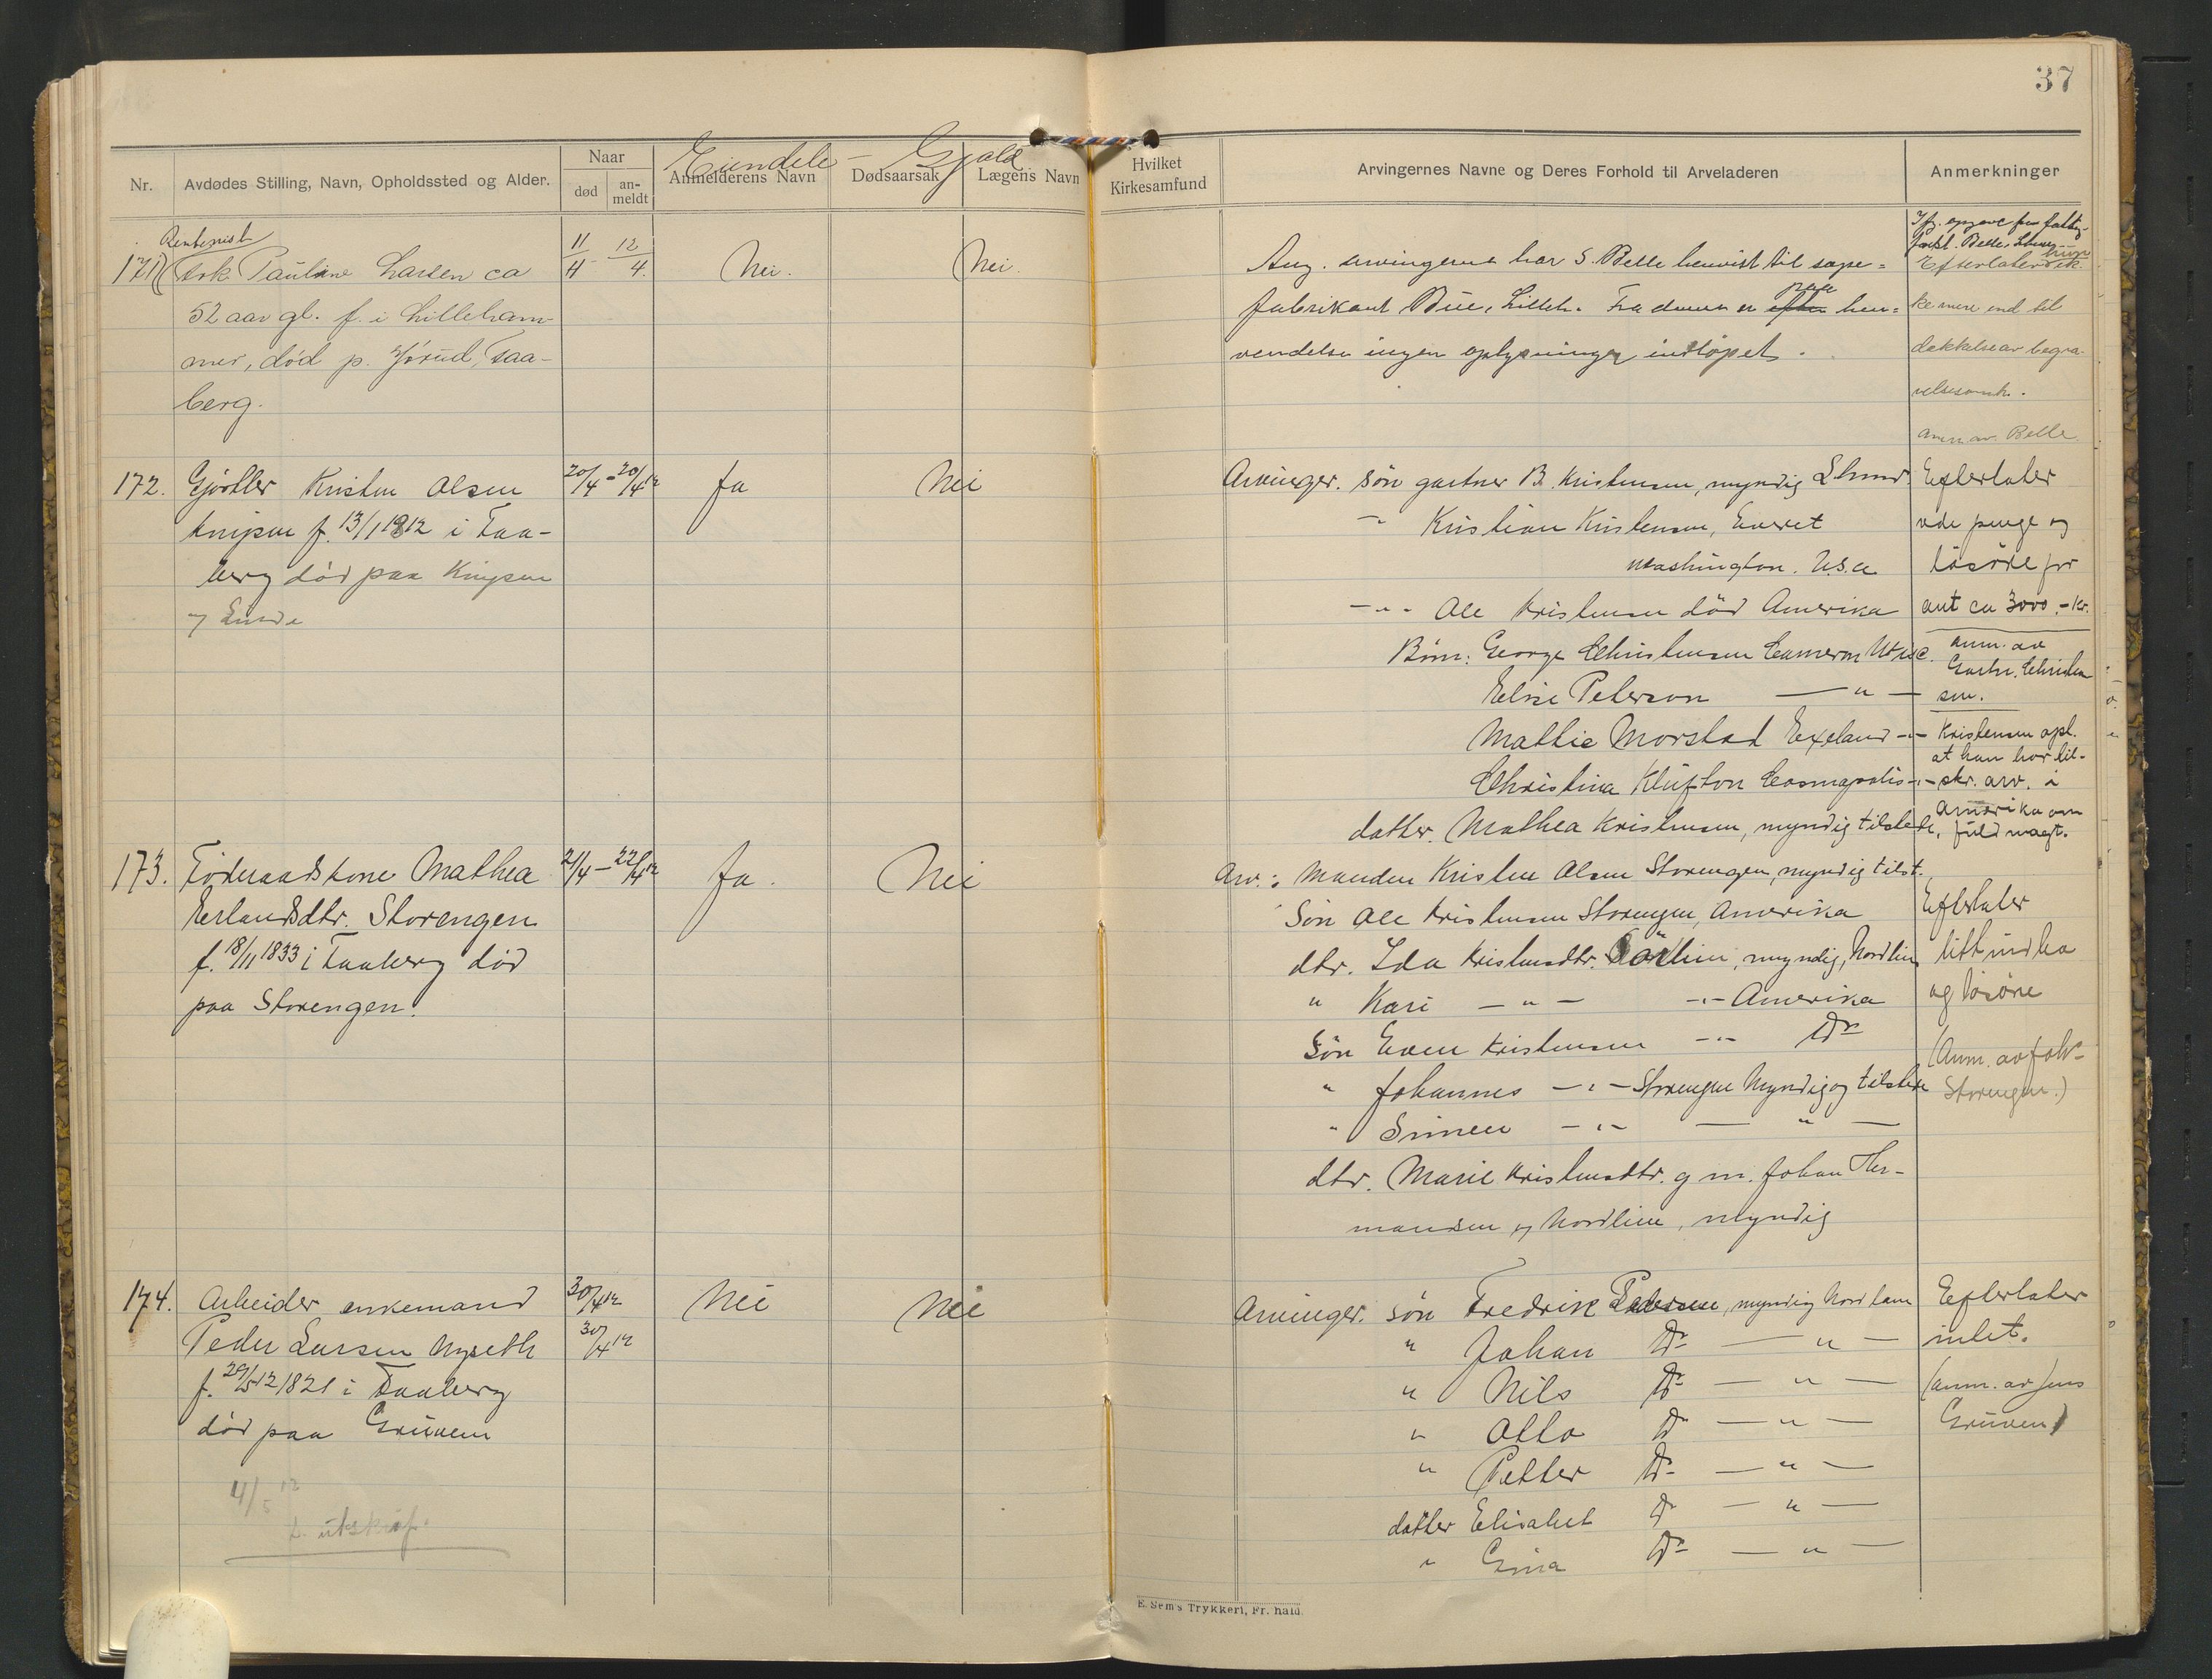 37
Nr.
Avdødes Stilling, Navn, Opholdssted og Alder.
Naar
død
an-
meldt
Eiendele - Gjæld
Anmelderens Navn
Dødsaarsak
Lægens Navn
Hvilket
Kirkesamfund
Arvingernes Navne og Deres Forhold til Arveladeren
Anmerkninger
171
Pauline Larsen ca
52 aar gl. f. i Lilleham-
mer, død p. Jørud, Faa-
berg.
11/4
12/4.
Nei.
Nei.
Ang. arvingerne har S. Belle henvist til sæpe-
fabrikant Bue, Lilleh. Fra denne er paa hen-
vendelse ingen oplysninger indløpet.
Efterlater ik-
ke mere end til
dækkelse av begra-
velsesomk.
anm. av Belle
172.
Gjørtler Kristen Olsen
Knipen f. 13/1 1812 i Faa-
berg død paa Knipen
20/4 - 20/4 12
Ja
Nei
Arvinger. søn gartner B. Kristensen, myndig Lhmr.
-"- Kristian Kristensen, Everet
Washington. U.S.a
-"- Ole Kristensen död Amerika
Børn: George Christensen Cameron
Elise Peterson - " -
Mathie Morstad Exeland -"-
Christina Klufton Cosmapolis -"-
datter. Mathea Kristensen, myndig tilstede,
Efterlater
ude penge og
løsøre for
ant ca 3000.- kr.
anm. av
Gartn. Christen
sen.
Kristensen opl.
at han har til-
skr. arv. i
Amerika om
fuldmagt.
173.
Föderaadskone Mathea
Erlandsdtr. Storengen
f. 18/11 1833 i Faaberg död
paa Storengen.
21/4 - 22/4 12
Ja.
Nei
Arv.: Manden Kristen Olsen Storengen, myndig tilst.
Søn Ole Kristensen Storengen, Amerika
dtr. Ida Kristensdtr. myndig, Nordlien
" Kari - " - -"- Amerika
Søn Even Kristensen -"- Do
" Johannes -"- Storengen Myndig og tilstede
" Simen -"- - " -
dtr. Marie Kristensdtr. g m. Johan Her-
mansen og Nordlien, myndig
Efterlater
litt indbo
og løsøre
(Anm. av Joh.
Storengen.)
174.
Arbeider enkemand
Peder Larsen Nyseth
1821 i Faaberg
død paa Gruven
30/4 12
30/4 12
Nei
Nei
Arvinger. søn Fredrik Pedersen, myndig
" Johan Do - " -
" Nils Do - " -
" Otto Do - " -
" Petter Do - " -
datter Elisabet Do - " -
" Gina Do - " -
Efterlater
intet.
(anm. av Jens
Gruven)
4/5 12
t. utskrift.
E. Sem's Trykkeri, Fr. hald.